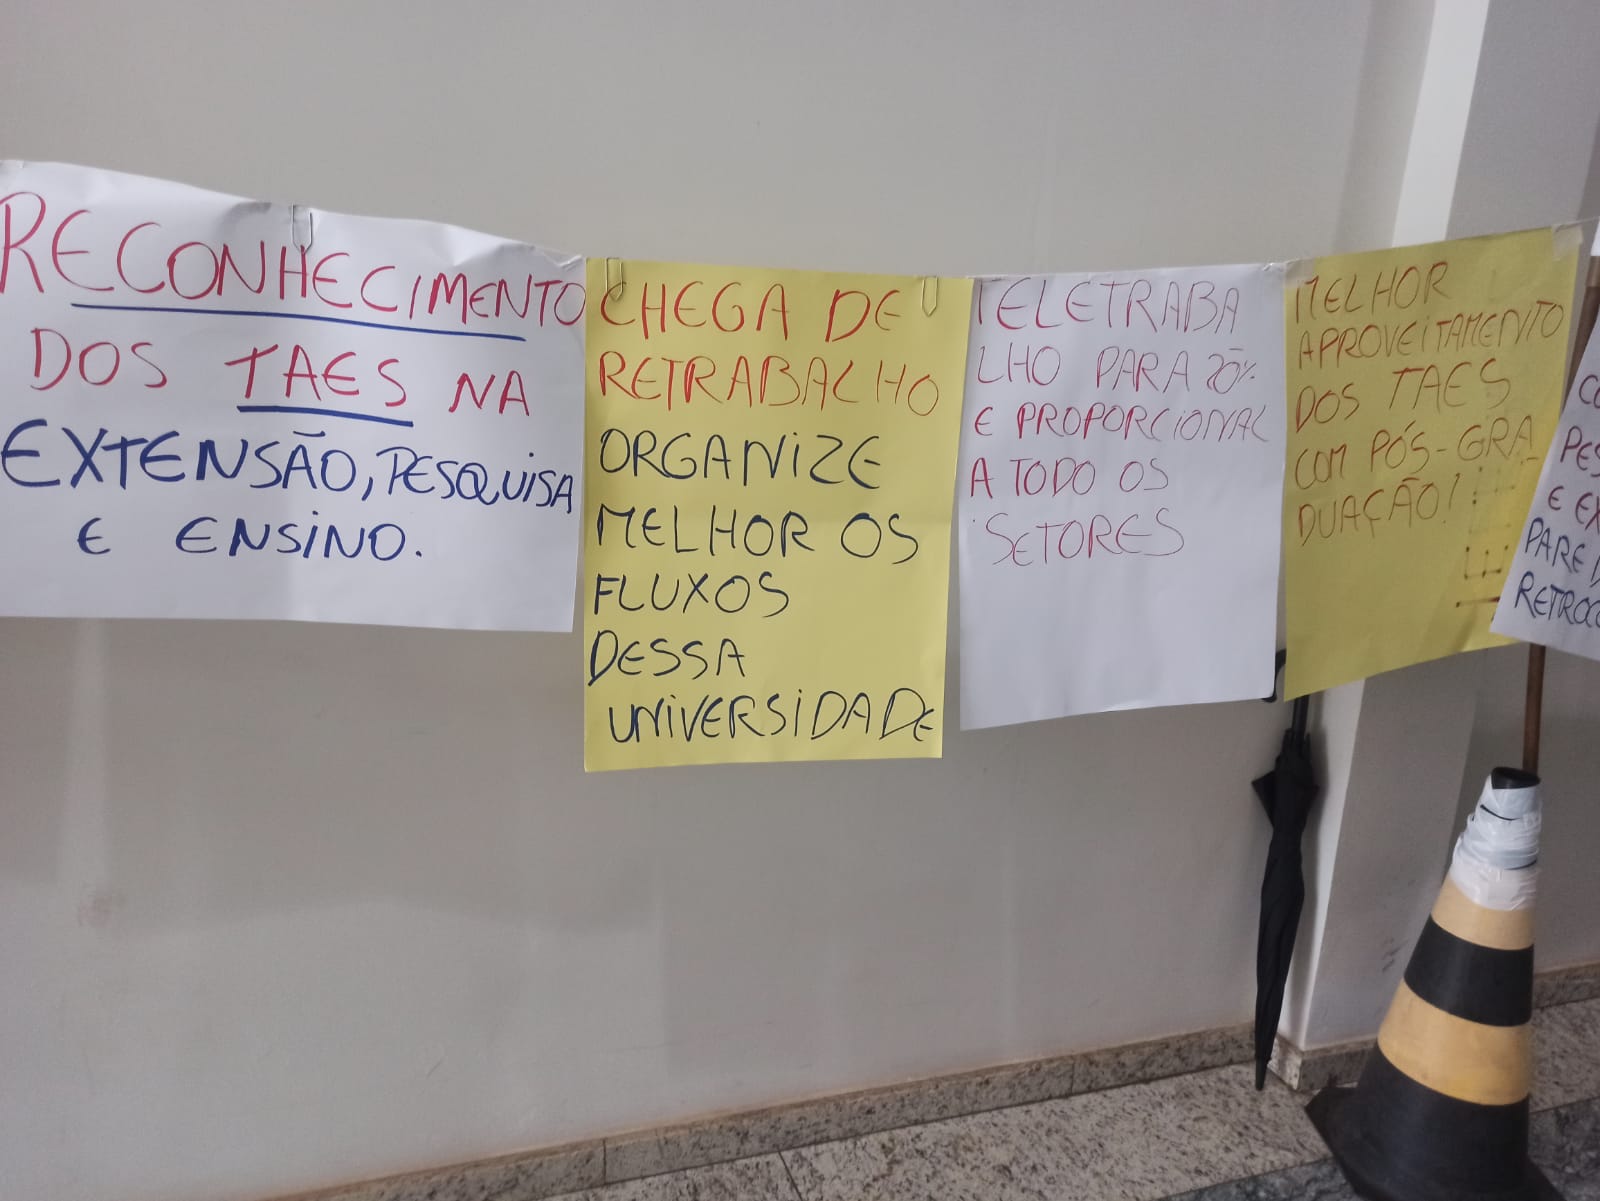 RECONHECIMENTO
DOS TAES NA
EXTENSÃO, PESQUISA
E ENSINO.
CHEGA DE
RETRABALHO
ORGANIZE
MELHOR OS
FLUXOS
DESSA
UNIVERSIDADE
TELETRABA
LHO PARA 20%
E PROPORCIONAL
A TODO OS
SETORES
MELHOR
APROVEITAMENTO
DOS TAES
COM PÓS-GRA
DUAÇÃO!
CO
PES
E EX
PARE
RETROC